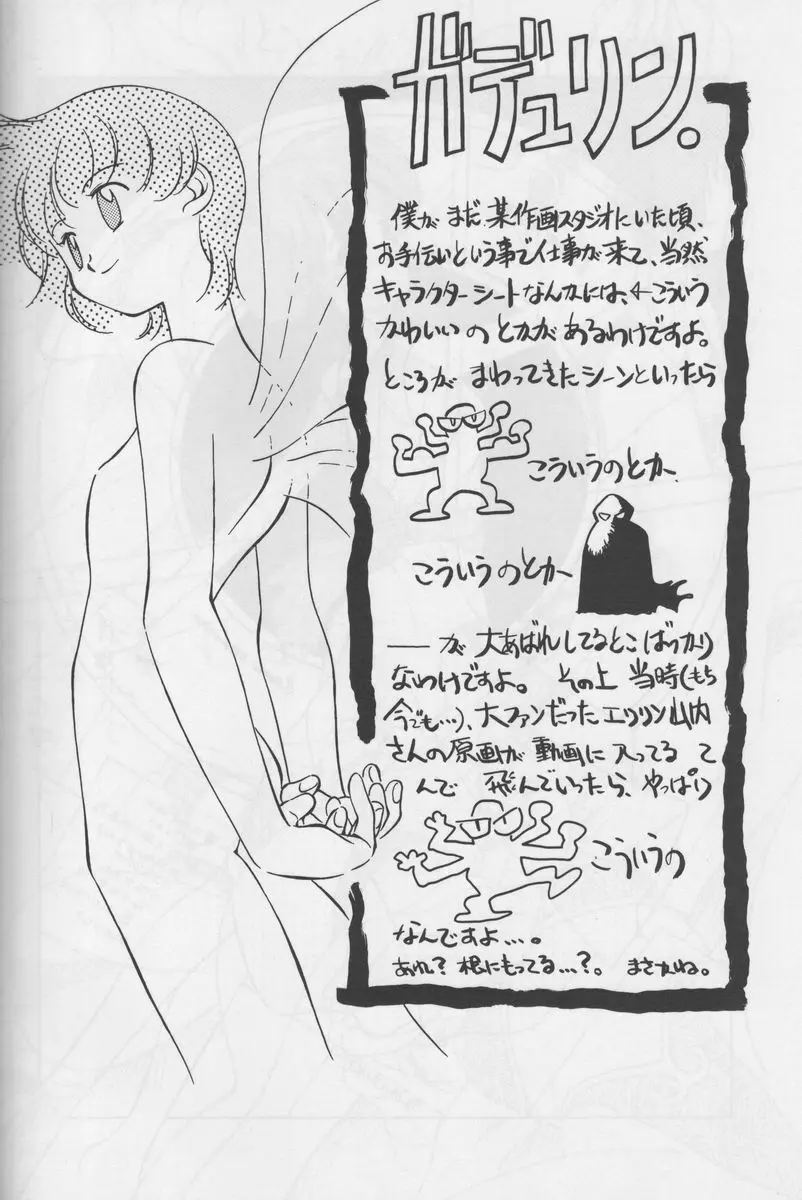 ガデュリン。
僕が まだ、某作画スタジオにいた頃、
お手伝いという事で仕事が来て、当然
キャラクターシートなんかには、←こういう
かわいい の とかが あるわけですよ。
ところが まわってきたシーンといったら
こういうのとか、
こういうのとか
―― が 大あばれしてるとこばっかり
なわけですよ。 その上 当時(もち
今でも…)、大ファンだった エツリン山内
さんの原画が 動画に入ってる て
んで 飛んでいったら、やっぱり
こういうの
なんですよ…。
あれ? 根にもってる…?。 まさかね。